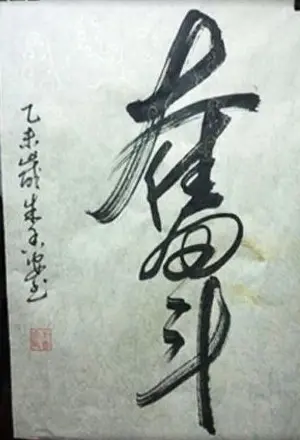 奮斗
乙未歲朱